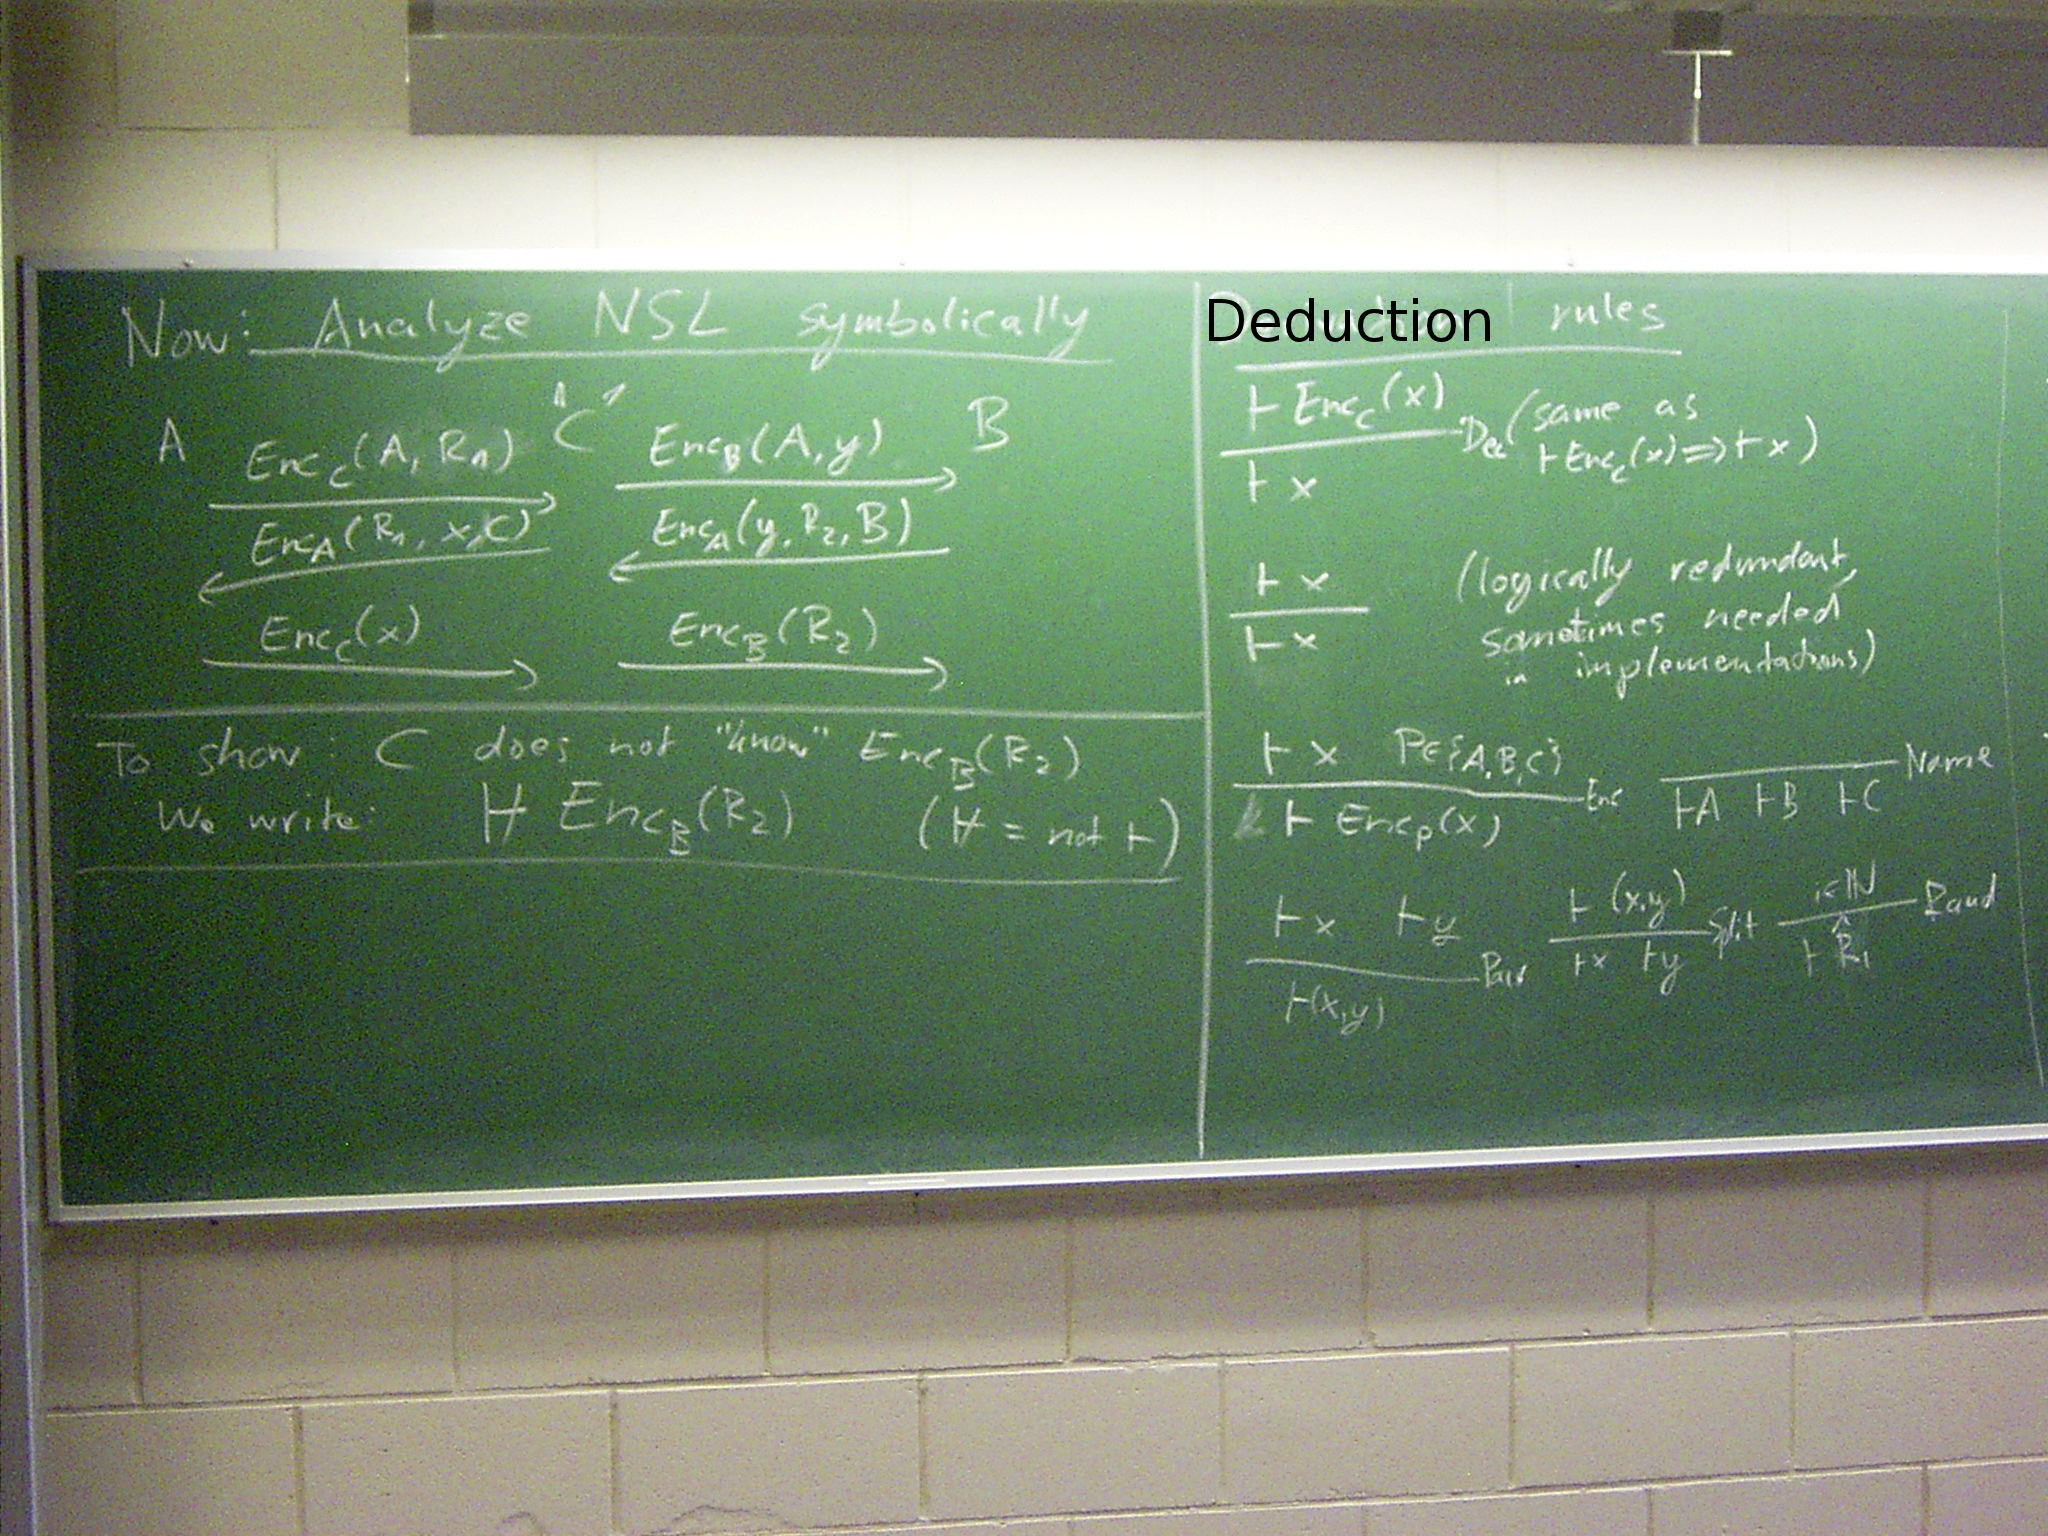 Now: Analyze NSL symbolically
A "C" B
Enc_C(A, R_1) Enc_B(A, y)
Enc_A(R_1, x, C) Enc_A(y, R_2, B)
Enc_C(x) Enc_B(R_2)
To show: C does not "know" Enc_B(R_2)
We write: ⊬ Enc_B(R_2) (⊬ = not ⊢)
Deduction rules
⊢ Enc_C(x) Dec (same as
⊢ x ⊢ Enc_C(x) ⇒ ⊢ x)
⊢ x (logically redundant,
⊢ x sometimes needed
in implementations)
⊢ x P∈{A,B,C} Enc Name
⊢ Enc_P(x) ⊢A ⊢B ⊢C
⊢ x ⊢ y Pair
⊢(x,y)
⊢ (x,y) Split
⊢x ⊢y
i∈ℕ Rand
⊢ R̂_i